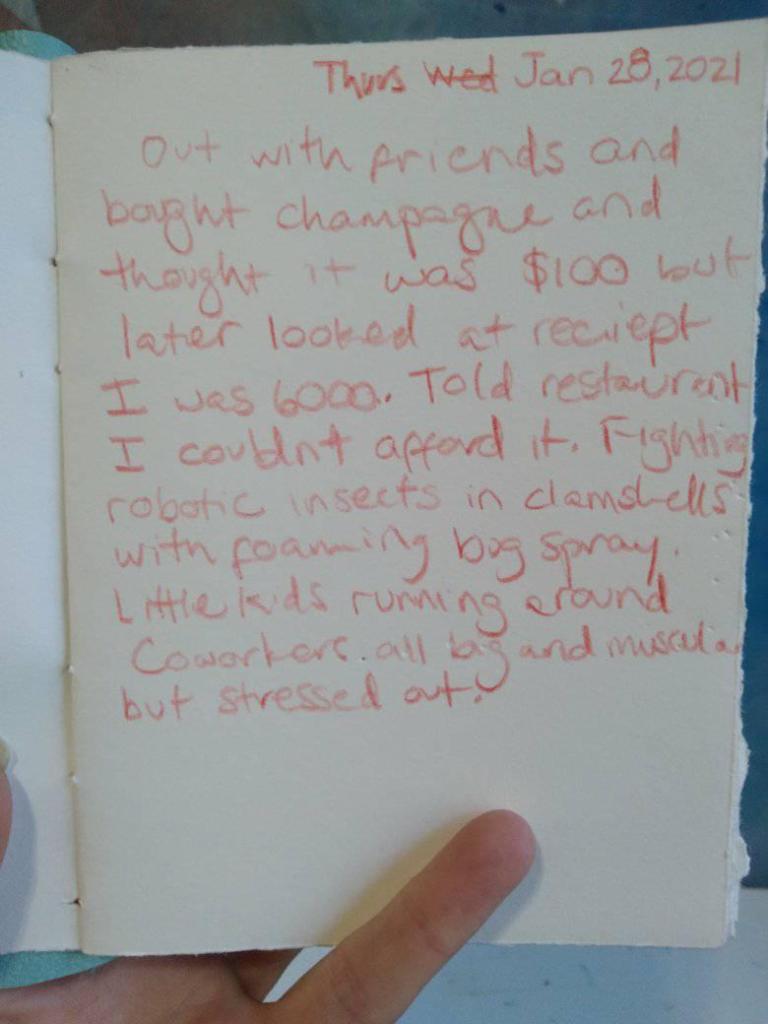 Thurs Wed Jan 28, 2021
Out with friends and
bought champagne and
thought it was $100 but
later looked at reciept
I was 6000. Told restaurant
I couldnt afford it. Fighting
robotic insects in clamshells
with foaming bug spray.
Little kids running around
Coworkers. all big and muscular
but stressed out.